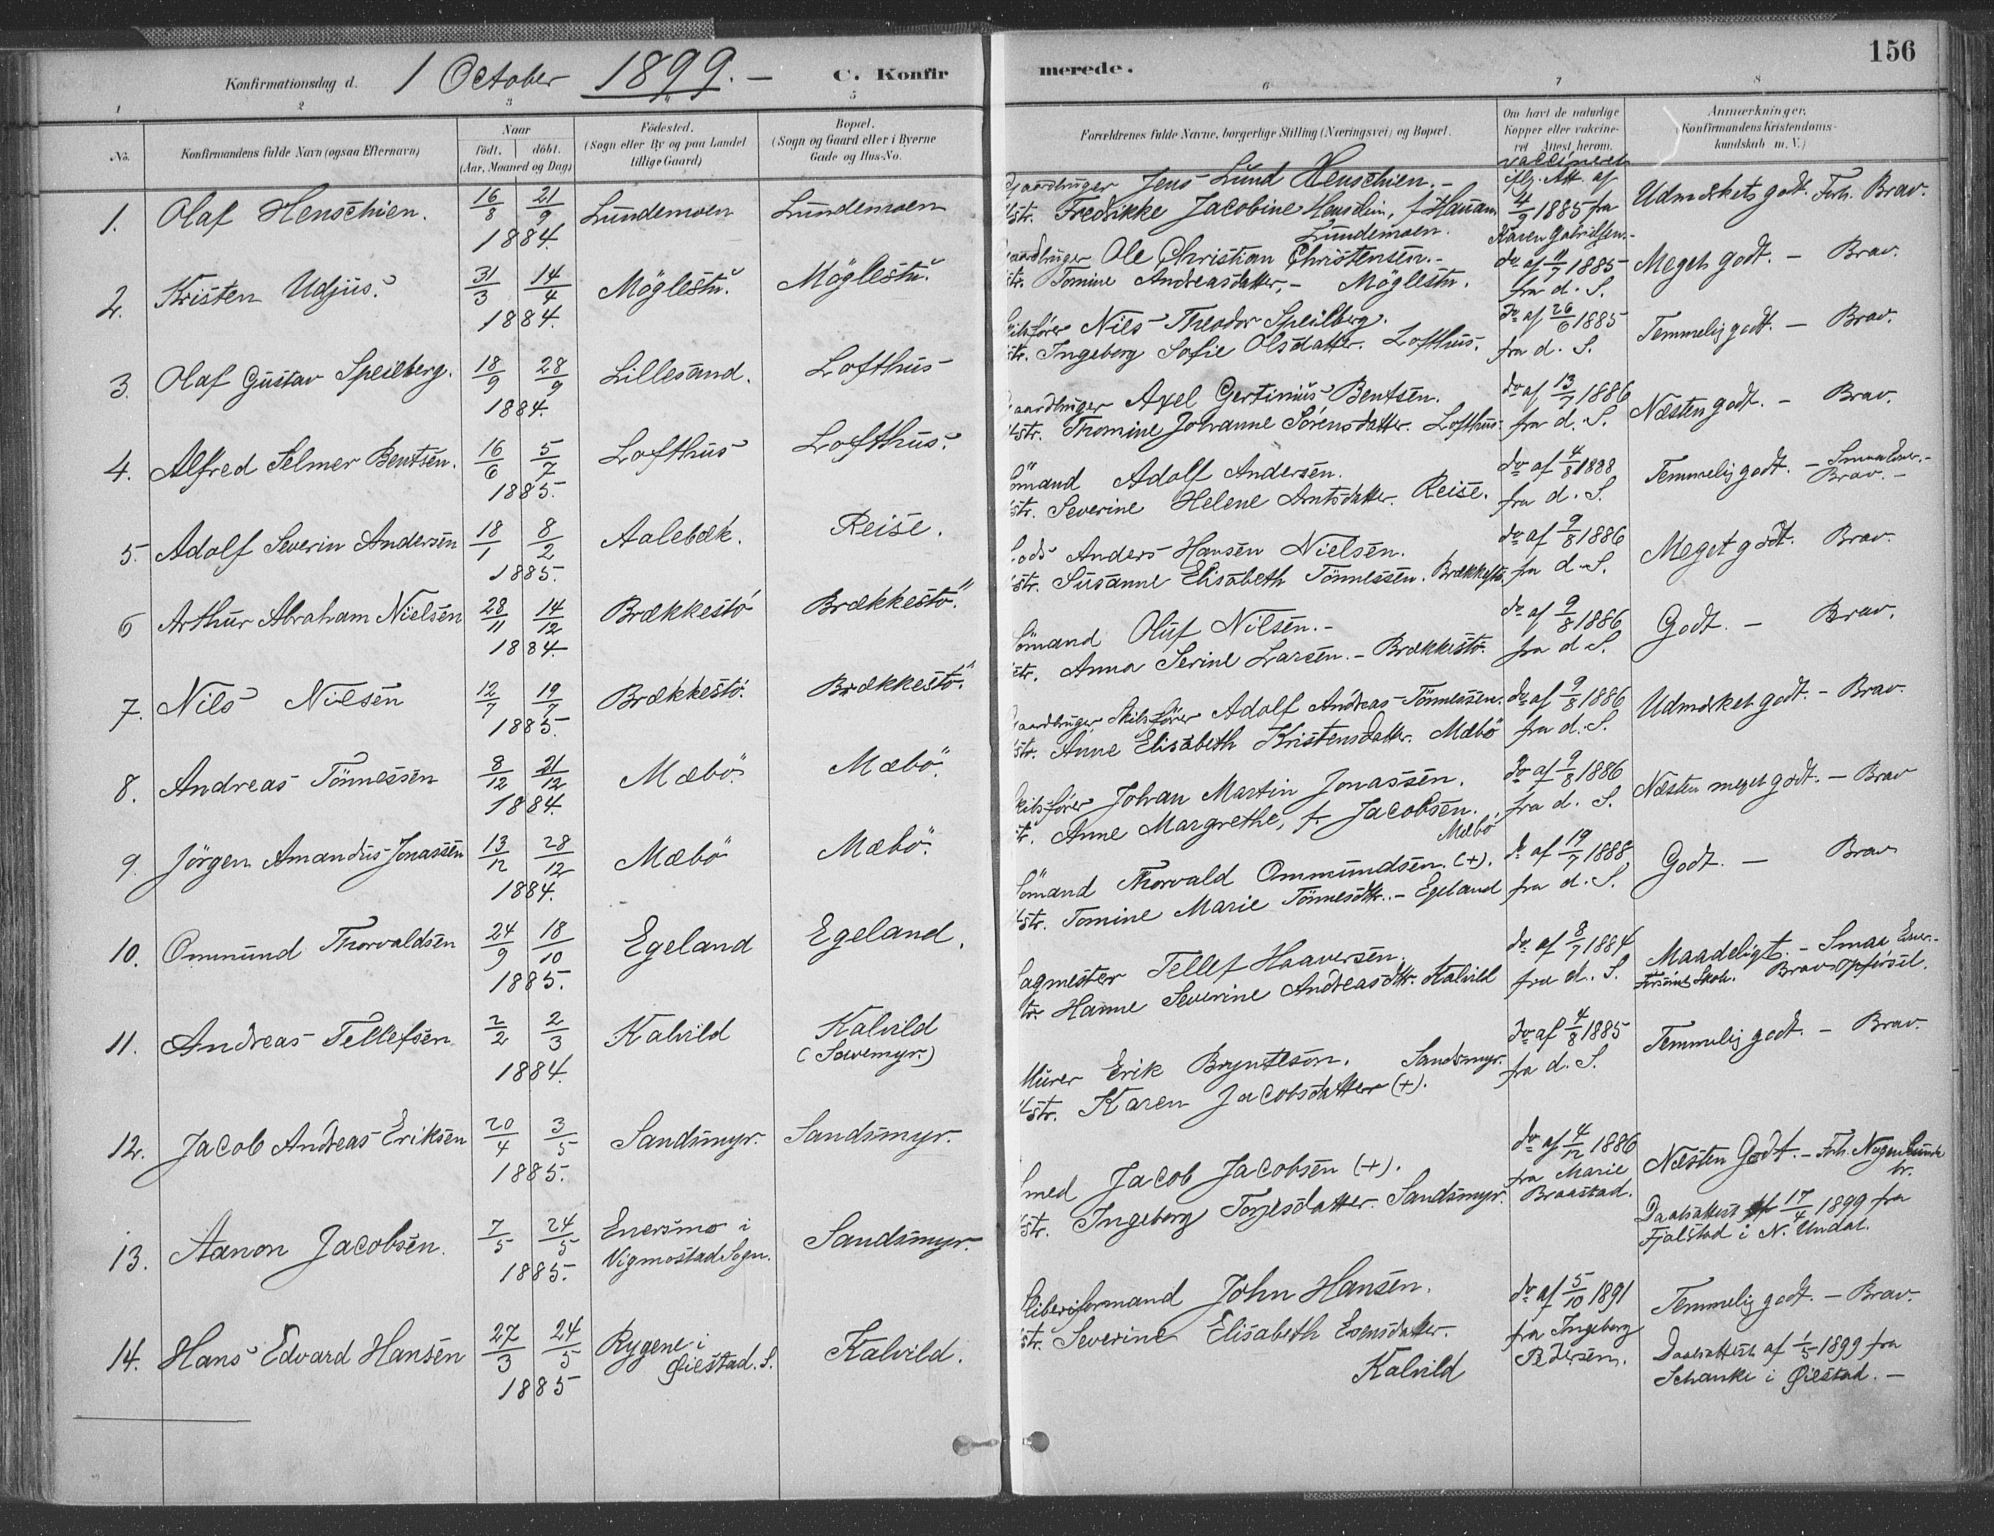 156
Konfirmationsdag d. 1 October 1899. – C. Konfirmerede.
1 2 3 5 6 7 8
No. Konfirmandens fulde Navn (ogsaa Efternavn) Naar født. døbt. (Aar, Maaned og Dag) Fødested. (Sogn eller By og paa Landet tillige Gaard) Bopæl. (Sogn og Gaard eller i Byerne Gade og Hus-No. Forældrenes fulde Navne, borgerlige Stilling (Næringsvei) og Bopæl. Om havt de naturlige Kopper eller vakcineret. Attest herom. Anmærkninger. (Konfirmandens Kristendomskundskab m. V.)
1. Olaf Henschien. 16/8 21/9 1884. Lundemoen Lundemoen
Gaardbruger Jens Lund Henschien. –
Hstr. Fredrikke Jacobine Henschien, f. Hanam
Lundemoen.
vaccineret iflg. Att. af 4/9 1885 fra Karen Gabrielsen. –
Udmerkets godt. Forh. Brav.
2. Kristen Udjus. 31/3 14/4 1884. Möglestu. Möglestu.
aardbruger Ole Christian Christensen. –
str. Tomine Andreasdatter, – Möglestu.
do af 11/7 1885 fra d. S.
Meget godt. – Brav.
3. Olaf Gustav Speilberg. 18/9 28/9 1884. Lillesand. Lofthus
kibsfører Nils Theodor Speilberg.
str. Ingeborg Sofie Olsdatter. Lofthus.
do af 26/6 1885 fra d. S.
Temmelig godt. – Brav.
4. Alfred Selmer Bentsen. 16/6 5/7 1885. Lofthus Lofthus.
Gaardbruger Axel Gertinius Bentsen.
Hstr. Thomine Johanne Sörensdatter. Lofthus.
do af 13/7 1886 fra d. S.
Næsten godt. – Brav.
5. Adolf Severin Andersen 18/1 8/2 1885. Aalebæk. Reise.
ömand Adolf Andersen.
str. Severine Helene Arntsdatter. Reise.
do af 4/8 1888 fra d. S.
Temmelig godt. – Brav. –
6 Arthur Abraham Nielsen 28/11 14/12 1884. Brækkestö Brækkestö.
Lods Anders Hansen Nielsen.
str. Susanne Elisabeth Tönnessen. Brækkestö
do af 9/8 1886 fra d. S.
Meget godt. Brav.
7. Nils Nilsen 12/7 19/7 1885. Brækkestö. Brækkestö.
ömand Oluf Nilsen. –
str. Anna Serine Larsen. – Brækkestö.
do af 9/8 1886 fra d. S.
Godt. – Brav.
8. Andreas Tönnessen 8/12 21/12 1884. Mæbö. Mæbö.
aardbruger, Skibsfører Adolf Andreas Tönnessen.
str. Anne Elisabeth Kristensdatter. Mæbö
do af 9/8 1886 fra d. S.
Udmerket godt. – Brav.
9. Jörgen Amandus Jonassen 13/12 28/12 1884. Mæbö Mæbö.
kibsfører Johan Martin Jonassen.
str. Anne Margrethe, f. Jacobsen.
Mæbö
do af 9/8 1886 fra d. S.
Næsten meget godt. – Brav
10. Ommund Thorvaldsen 24/9 18/10 1885. Egeland Egeland.
ömand Thorvald Ommundsen. (+).
Hstr. Tomine Marie Tönnesdtr. – Egeland
do af 19/7 1888 fra d. S.
Godt. – Brav
11. Andreas Tellefsen 2/2 2/3 1884. Kalvild Kalvild
agmester Tellef Haaversen.
str. Hanne Severine Andreasdtr. Kalvild
do af 8/7 1884 fra d. S.
Maadeligt. – Smaa Evner. –
Skole. Brav Opförsel.
12. Jacob Andreas Eriksen 20/4 3/5 1885. Sandsmyr. Sandsmyr.
Murer Erik Bryntesön. Sandsmyr.
Hstr. Karen Jacobsdatter (+).
do af 4/8 1885 fra d. S.
Temmelig godt. – Brav.
13. Aanon Jacobsen. 7/5 24/5 1885. Enersmo i Vigmostad Sogn. Sandsmyr.
Smed Jacob Jacobsen (+).
str. Ingeborg Torjesdatter. Sandsmyr.
do af 4/12 1886 fra Marie Braastad.
Næsten Godt. – Forh.
Daabsattest af 17/4 1899 fra Fjalstad i N. Undal.
14. Hans Edvard Hansen 27/3 24/5 1885 Rygene i Øiestad. S. Kalvild.
formand John Hansen.
str. Severine Elisabeth Evensdatter.
Kalvild
do af 5/10 1891 fra Ingeborg Pedersen.
Temmelig godt. – Brav.
Daabsattest af 1/5 1899 fra Schanke i Øiestad. –